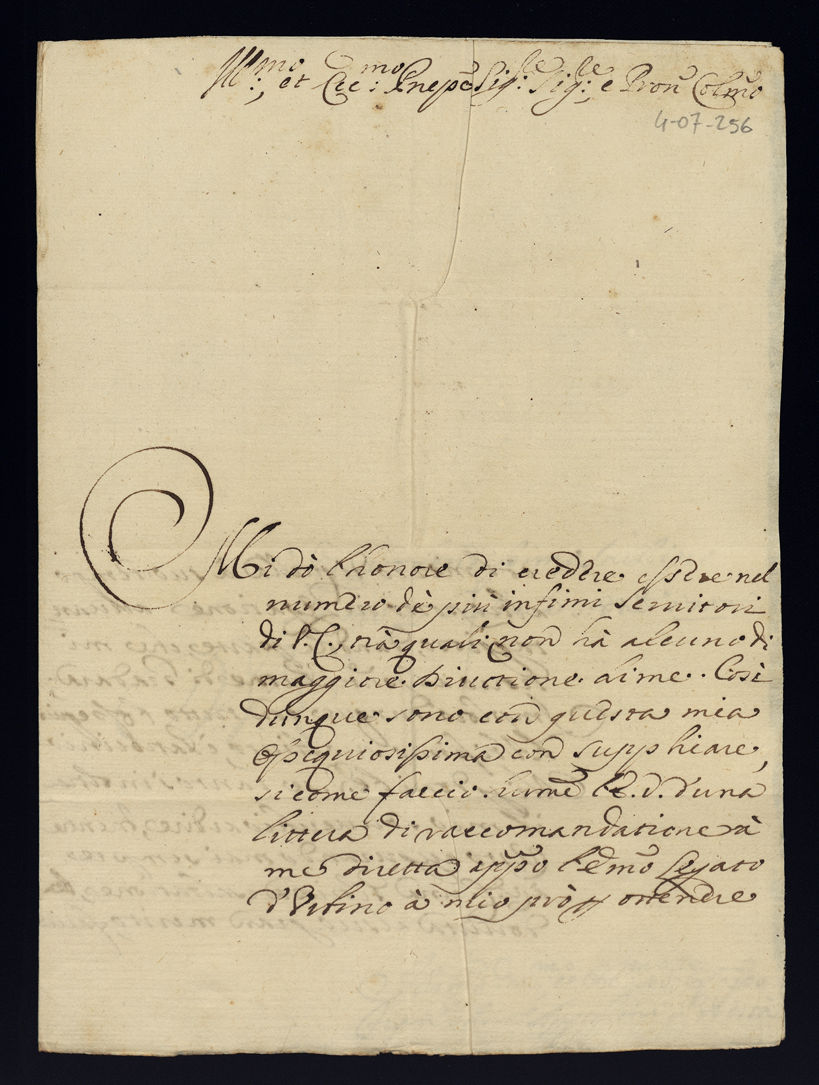 Ill:mo, et Ecc:mo Prnpe Sig:le Sig:le, e Pron Colmo
4-07-256
Mi dò l'honore di credere essere nel
numero dè più infimi servitori
di V.E., trà quali non hà alcuno di
maggiore divotione di me. Così
dunque sono con questa mia
ossequiosissima con supplicare,
sicome faccio hume l'E.V. d'una
littera di raccomandatione à
me diretta appo l'Emo Legato
d'Urbino à mio prò p ottenere